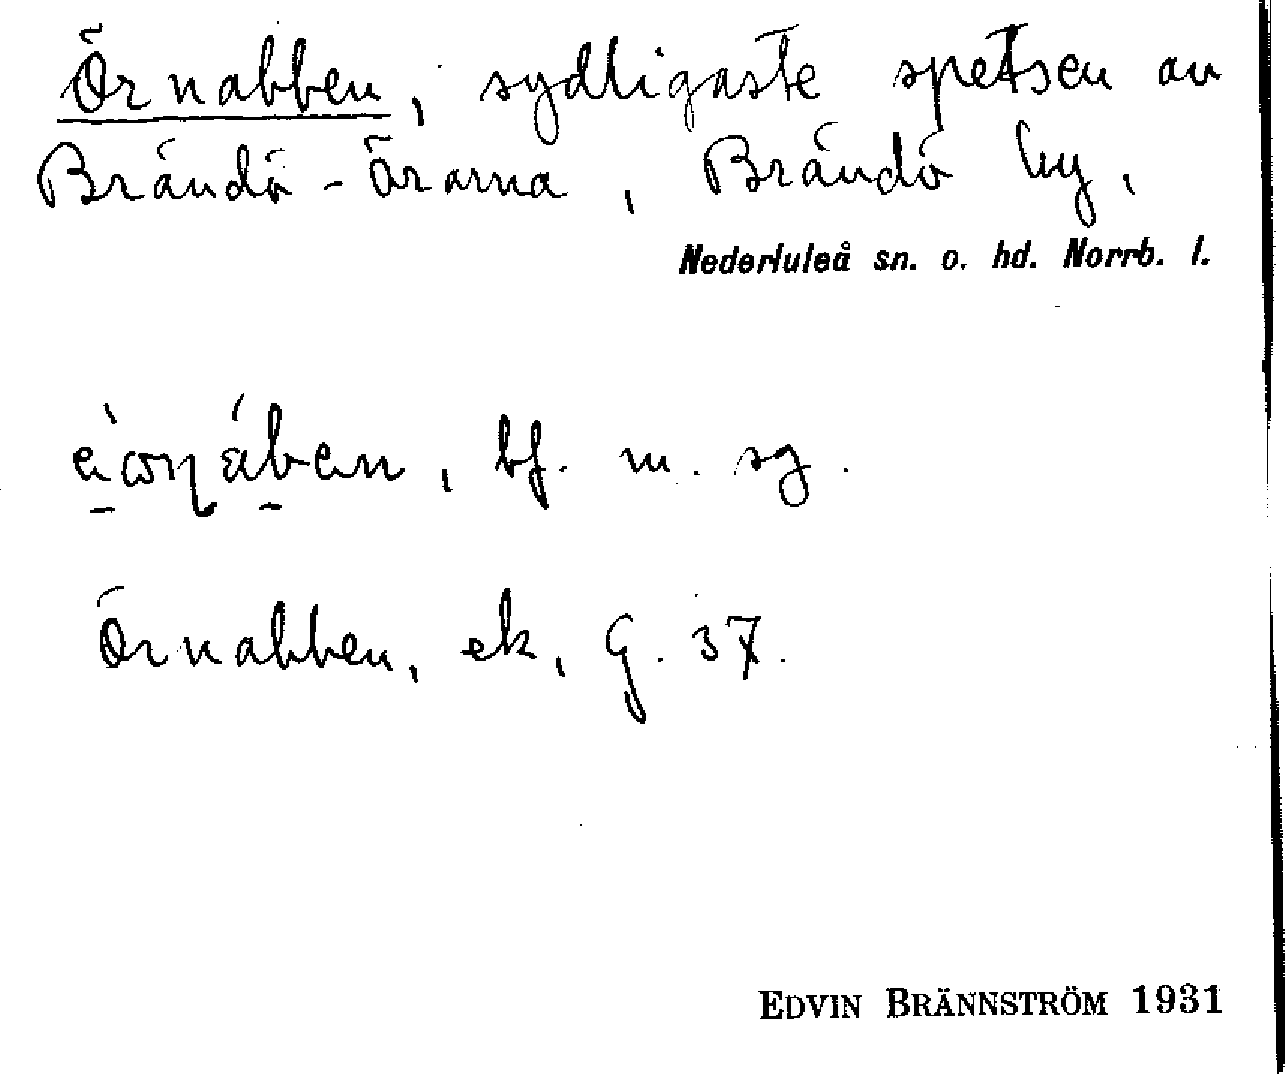 Örnabben, sydligaste spetsen av
Brändö-örarna, Brändö by,
Nederluleå sn. o. hd. Norrb. l.
bf. m. sg.
Örnabben, ek, G. 37.
EDVIN BRÄNNSTRÖM 1931